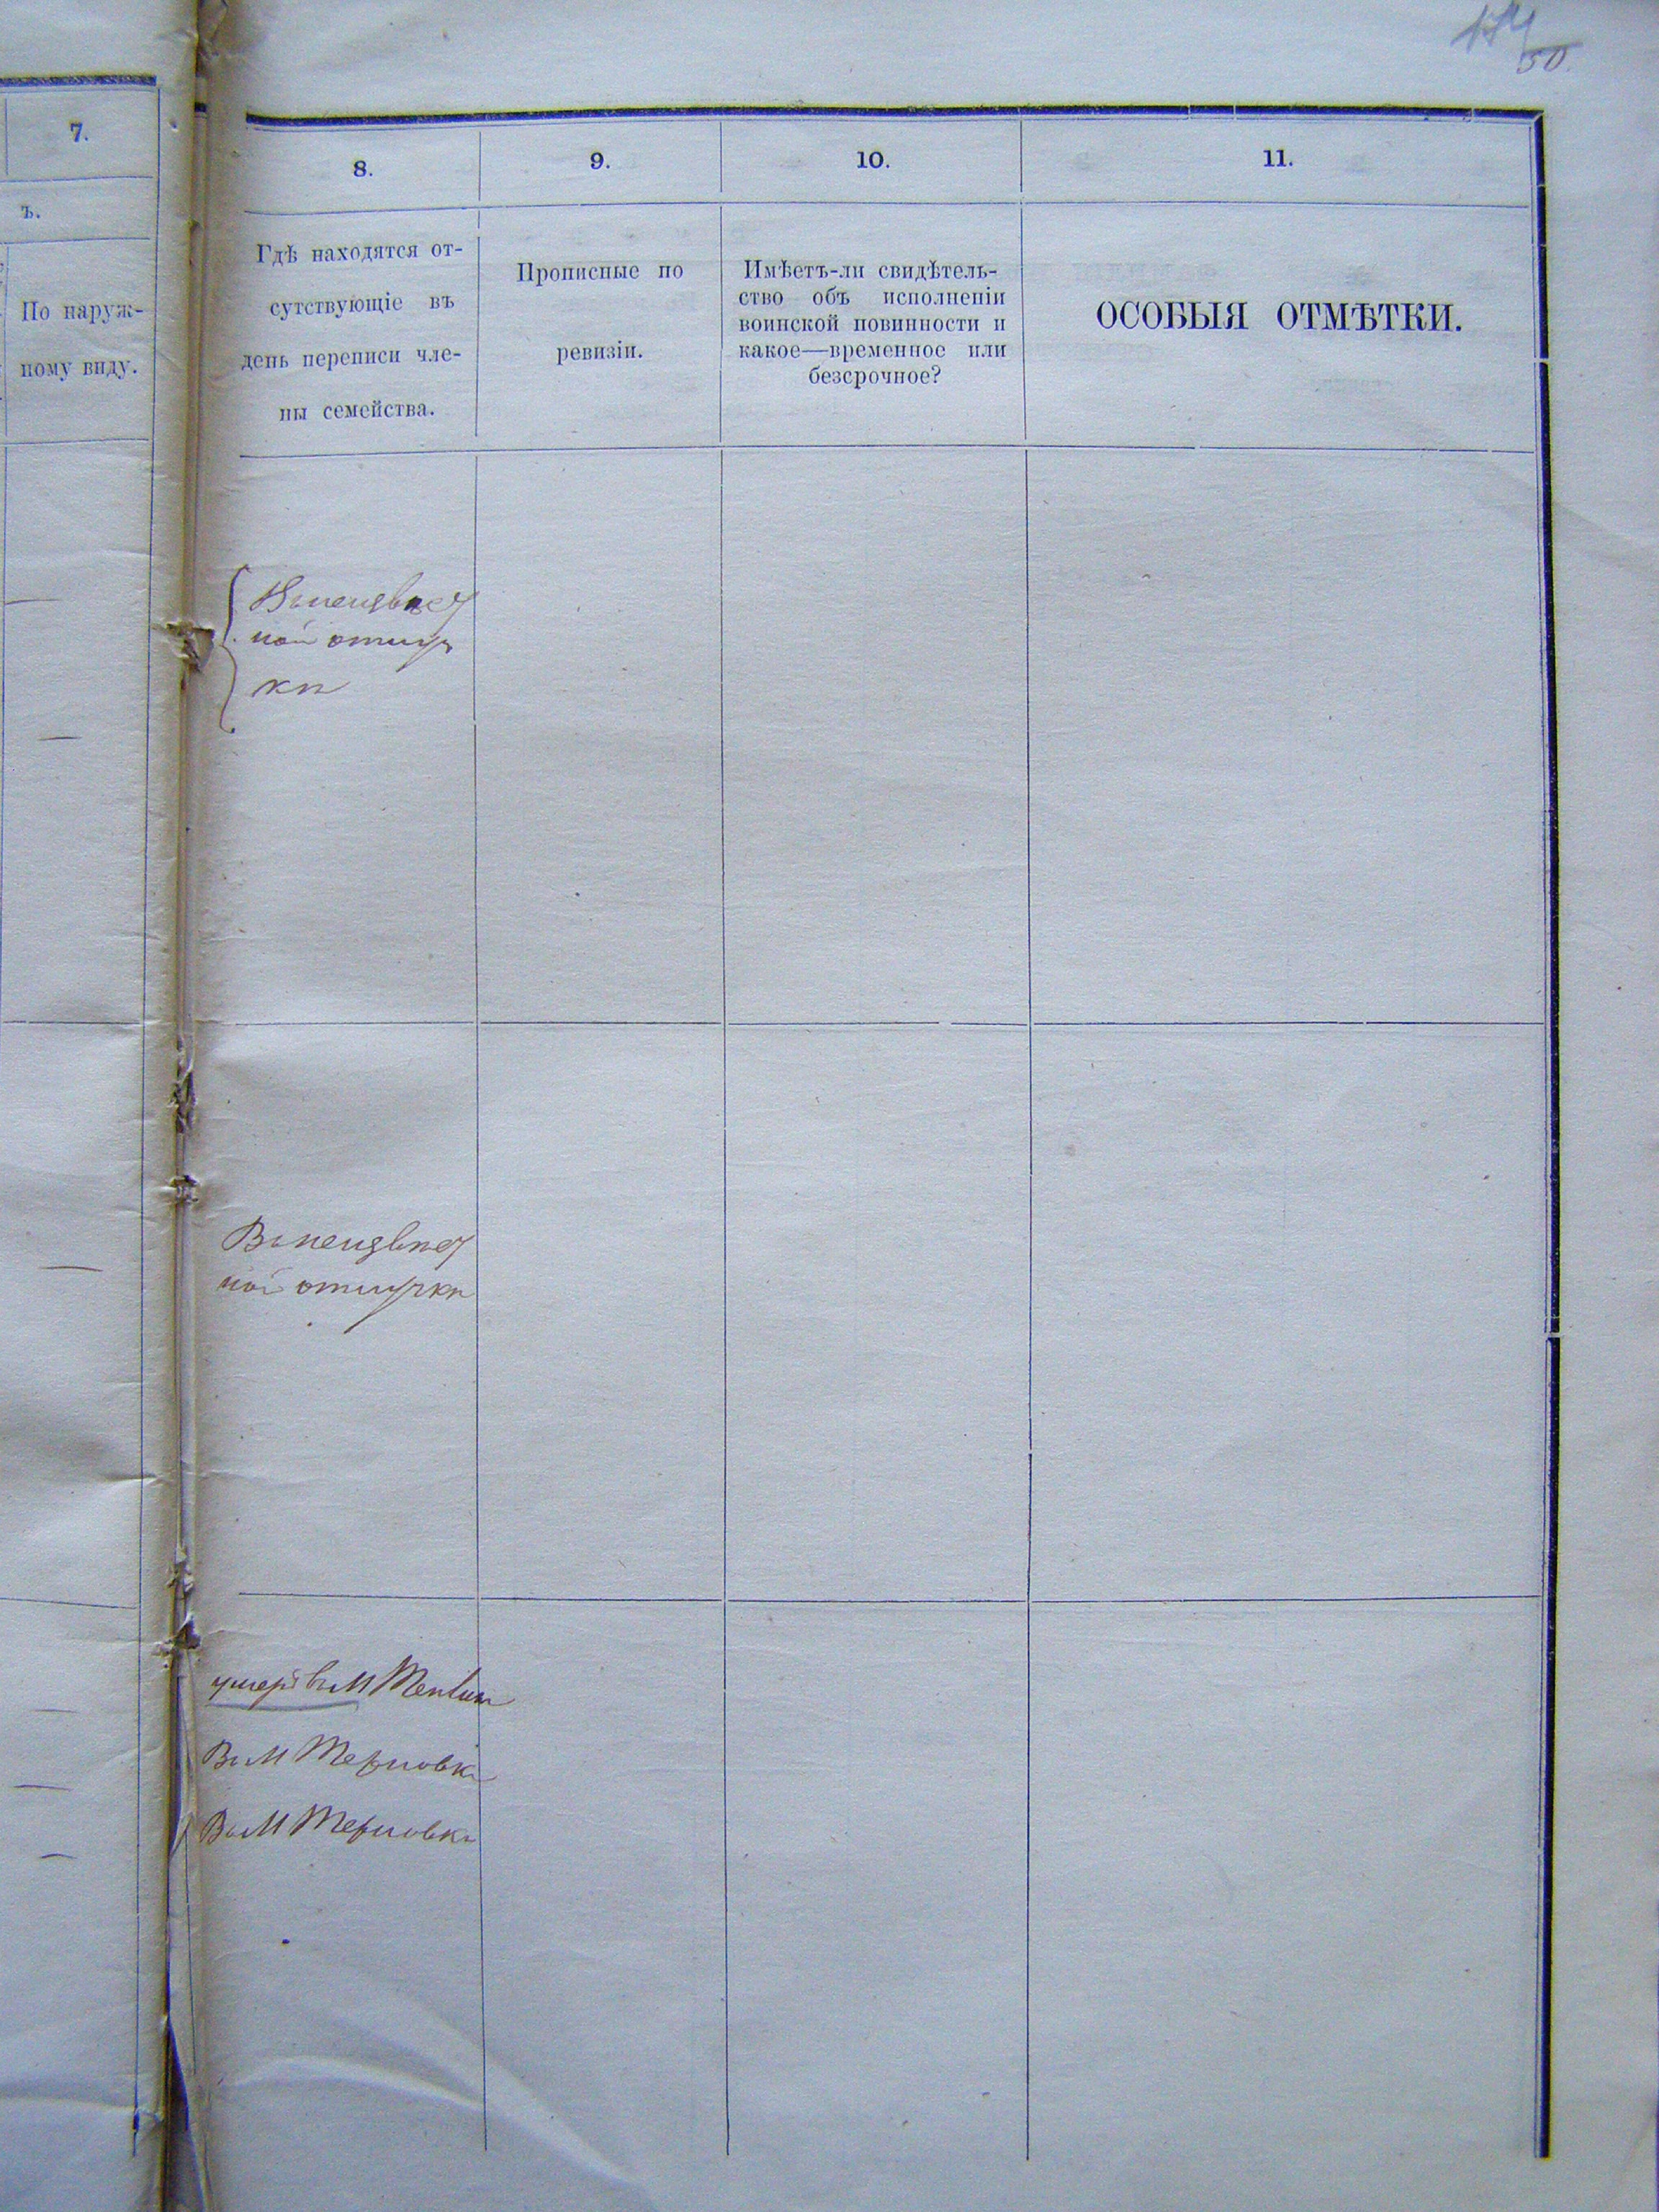 174
50.
7.
ъ.
По наруж-
ному виду.
8.
9.
10.
11.
Гдѣ находятся от-
сутствующіе въ
день переписи чле-
ны семейства.
Прописные по
ревизіи.
Имѣетъ-ли свидѣтель-
ство объ исполненіи
воинской повинности и
какое—временное или
безсрочное?
ОСОБЫЯ ОТМѢТКИ.
ной
ки
ной
Въ М
Въ М Терновки
Въ М Терновки